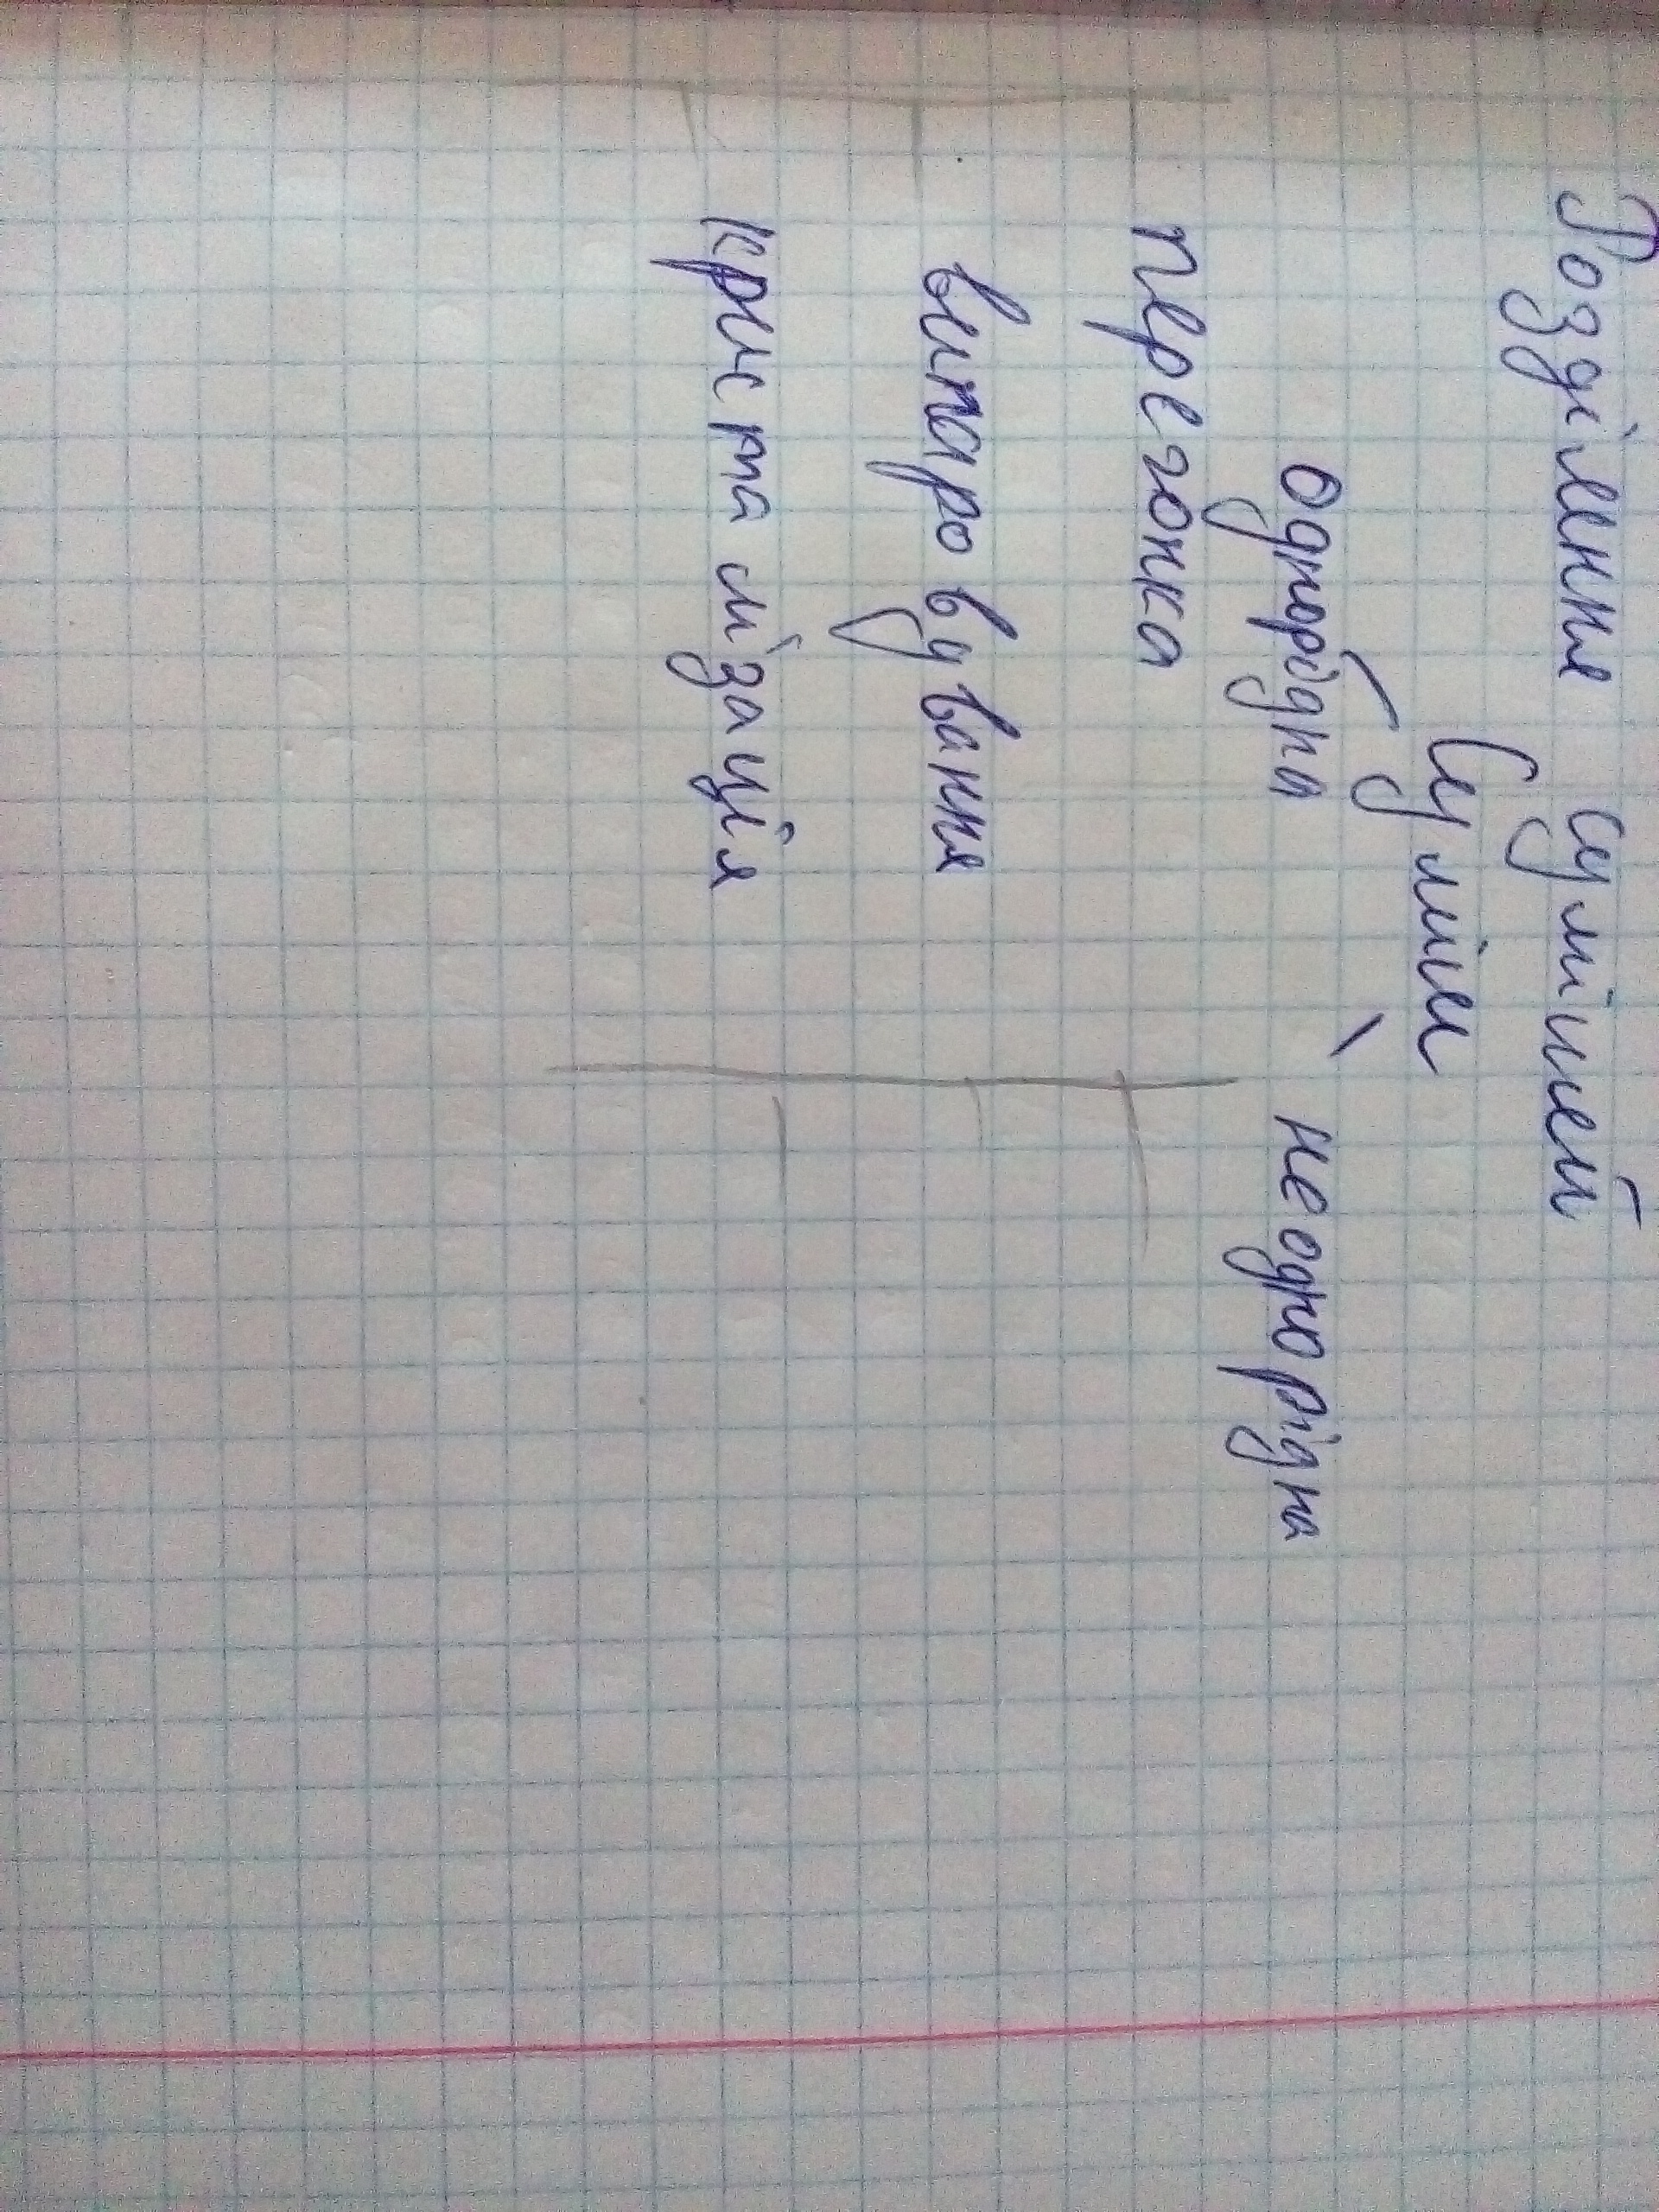 Розділення сумішей
Суміш
однорідна неоднорідна
перегонка
випаровування
кристалізація